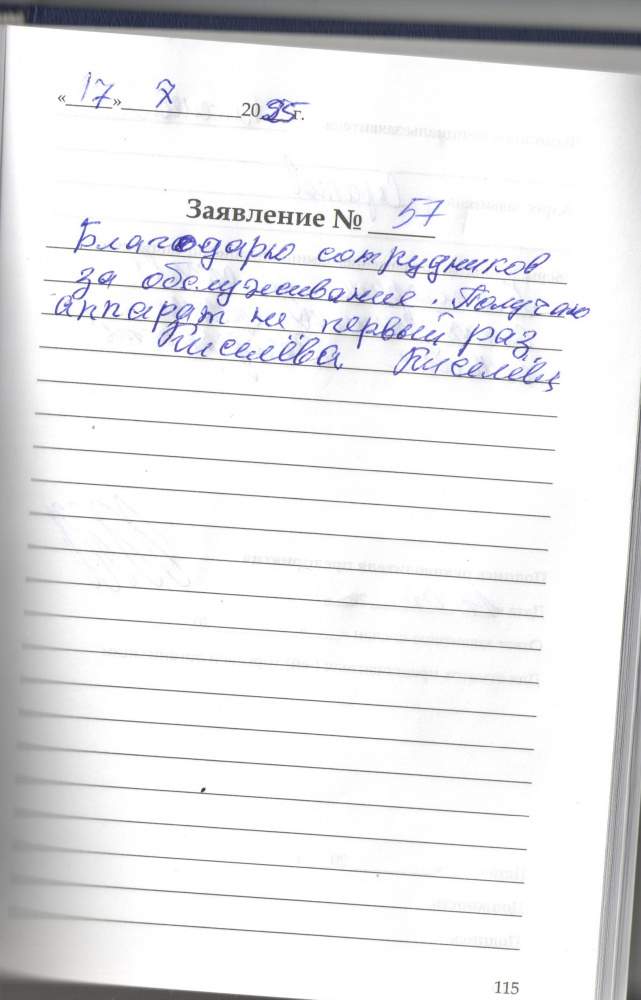 «17» 7 2025г.
Заявление № 57
Благодарю сотрудников
за обслуживание. Получаю
аппарат не первый раз
Киселёва Киселёв
115